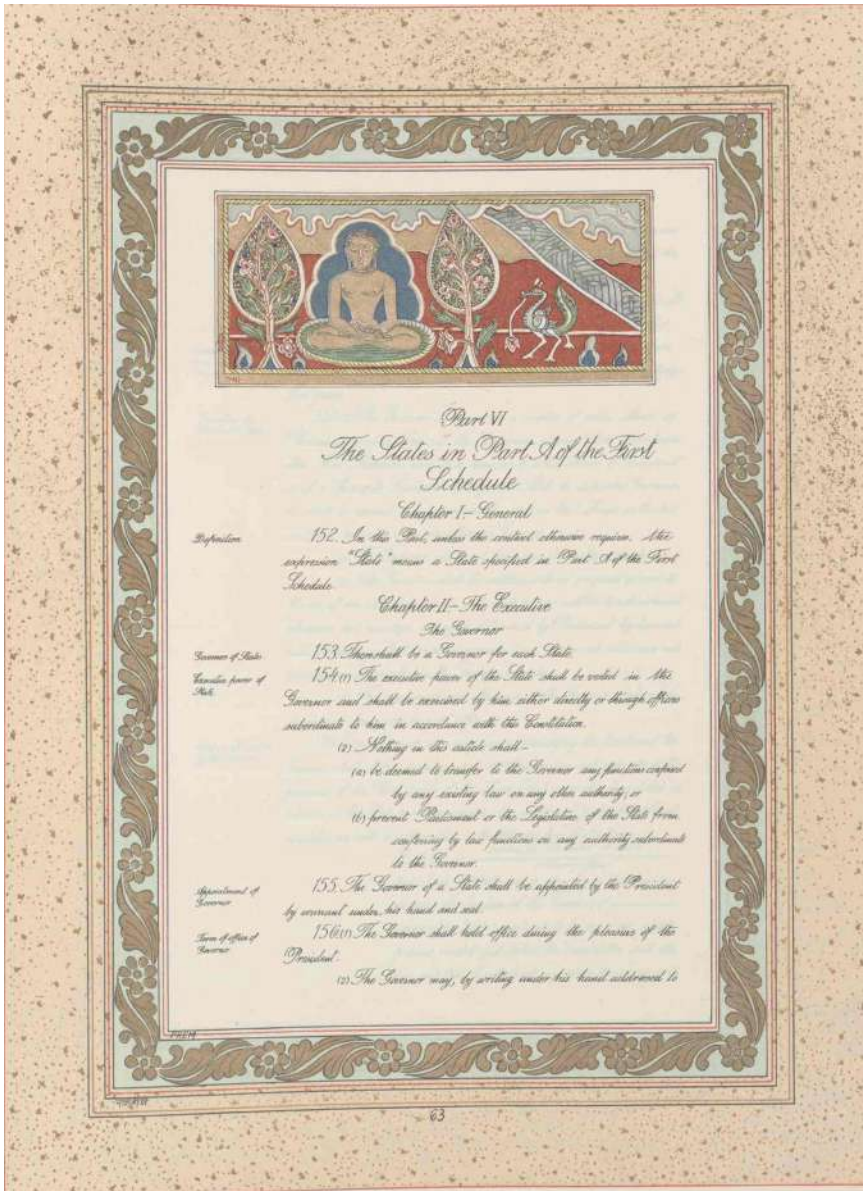 Part VI
The States in Part A of the First
Schedule
Chapter I.— General
Definition
152. In this Part, unless the context otherwise requires, the
expression "State" means a State specified in Part A of the First
Schedule.
Chapter II.— The Executive
The Governor
Governors of States
153. There shall be a Governor for each State.
Executive power of
State.
154. (1) The executive power of the State shall be vested in the
Governor and shall be exercised by him either directly or through officers
subordinate to him in accordance with this Constitution.
(2) Nothing in this article shall—
(a) be deemed to transfer to the Governor any functions conferred
by any existing law on any other authority; or
(b) prevent Parliament or the Legislature of the State from
conferring by law functions on any authority subordinate
to the Governor.
Appointment of
Governor
155. The Governor of a State shall be appointed by the President
by warrant under his hand and seal.
Term of office of
Governor
156. (1) The Governor shall hold office during the pleasure of the
President.
(2) The Governor may, by writing under his hand addressed to
PREM
63